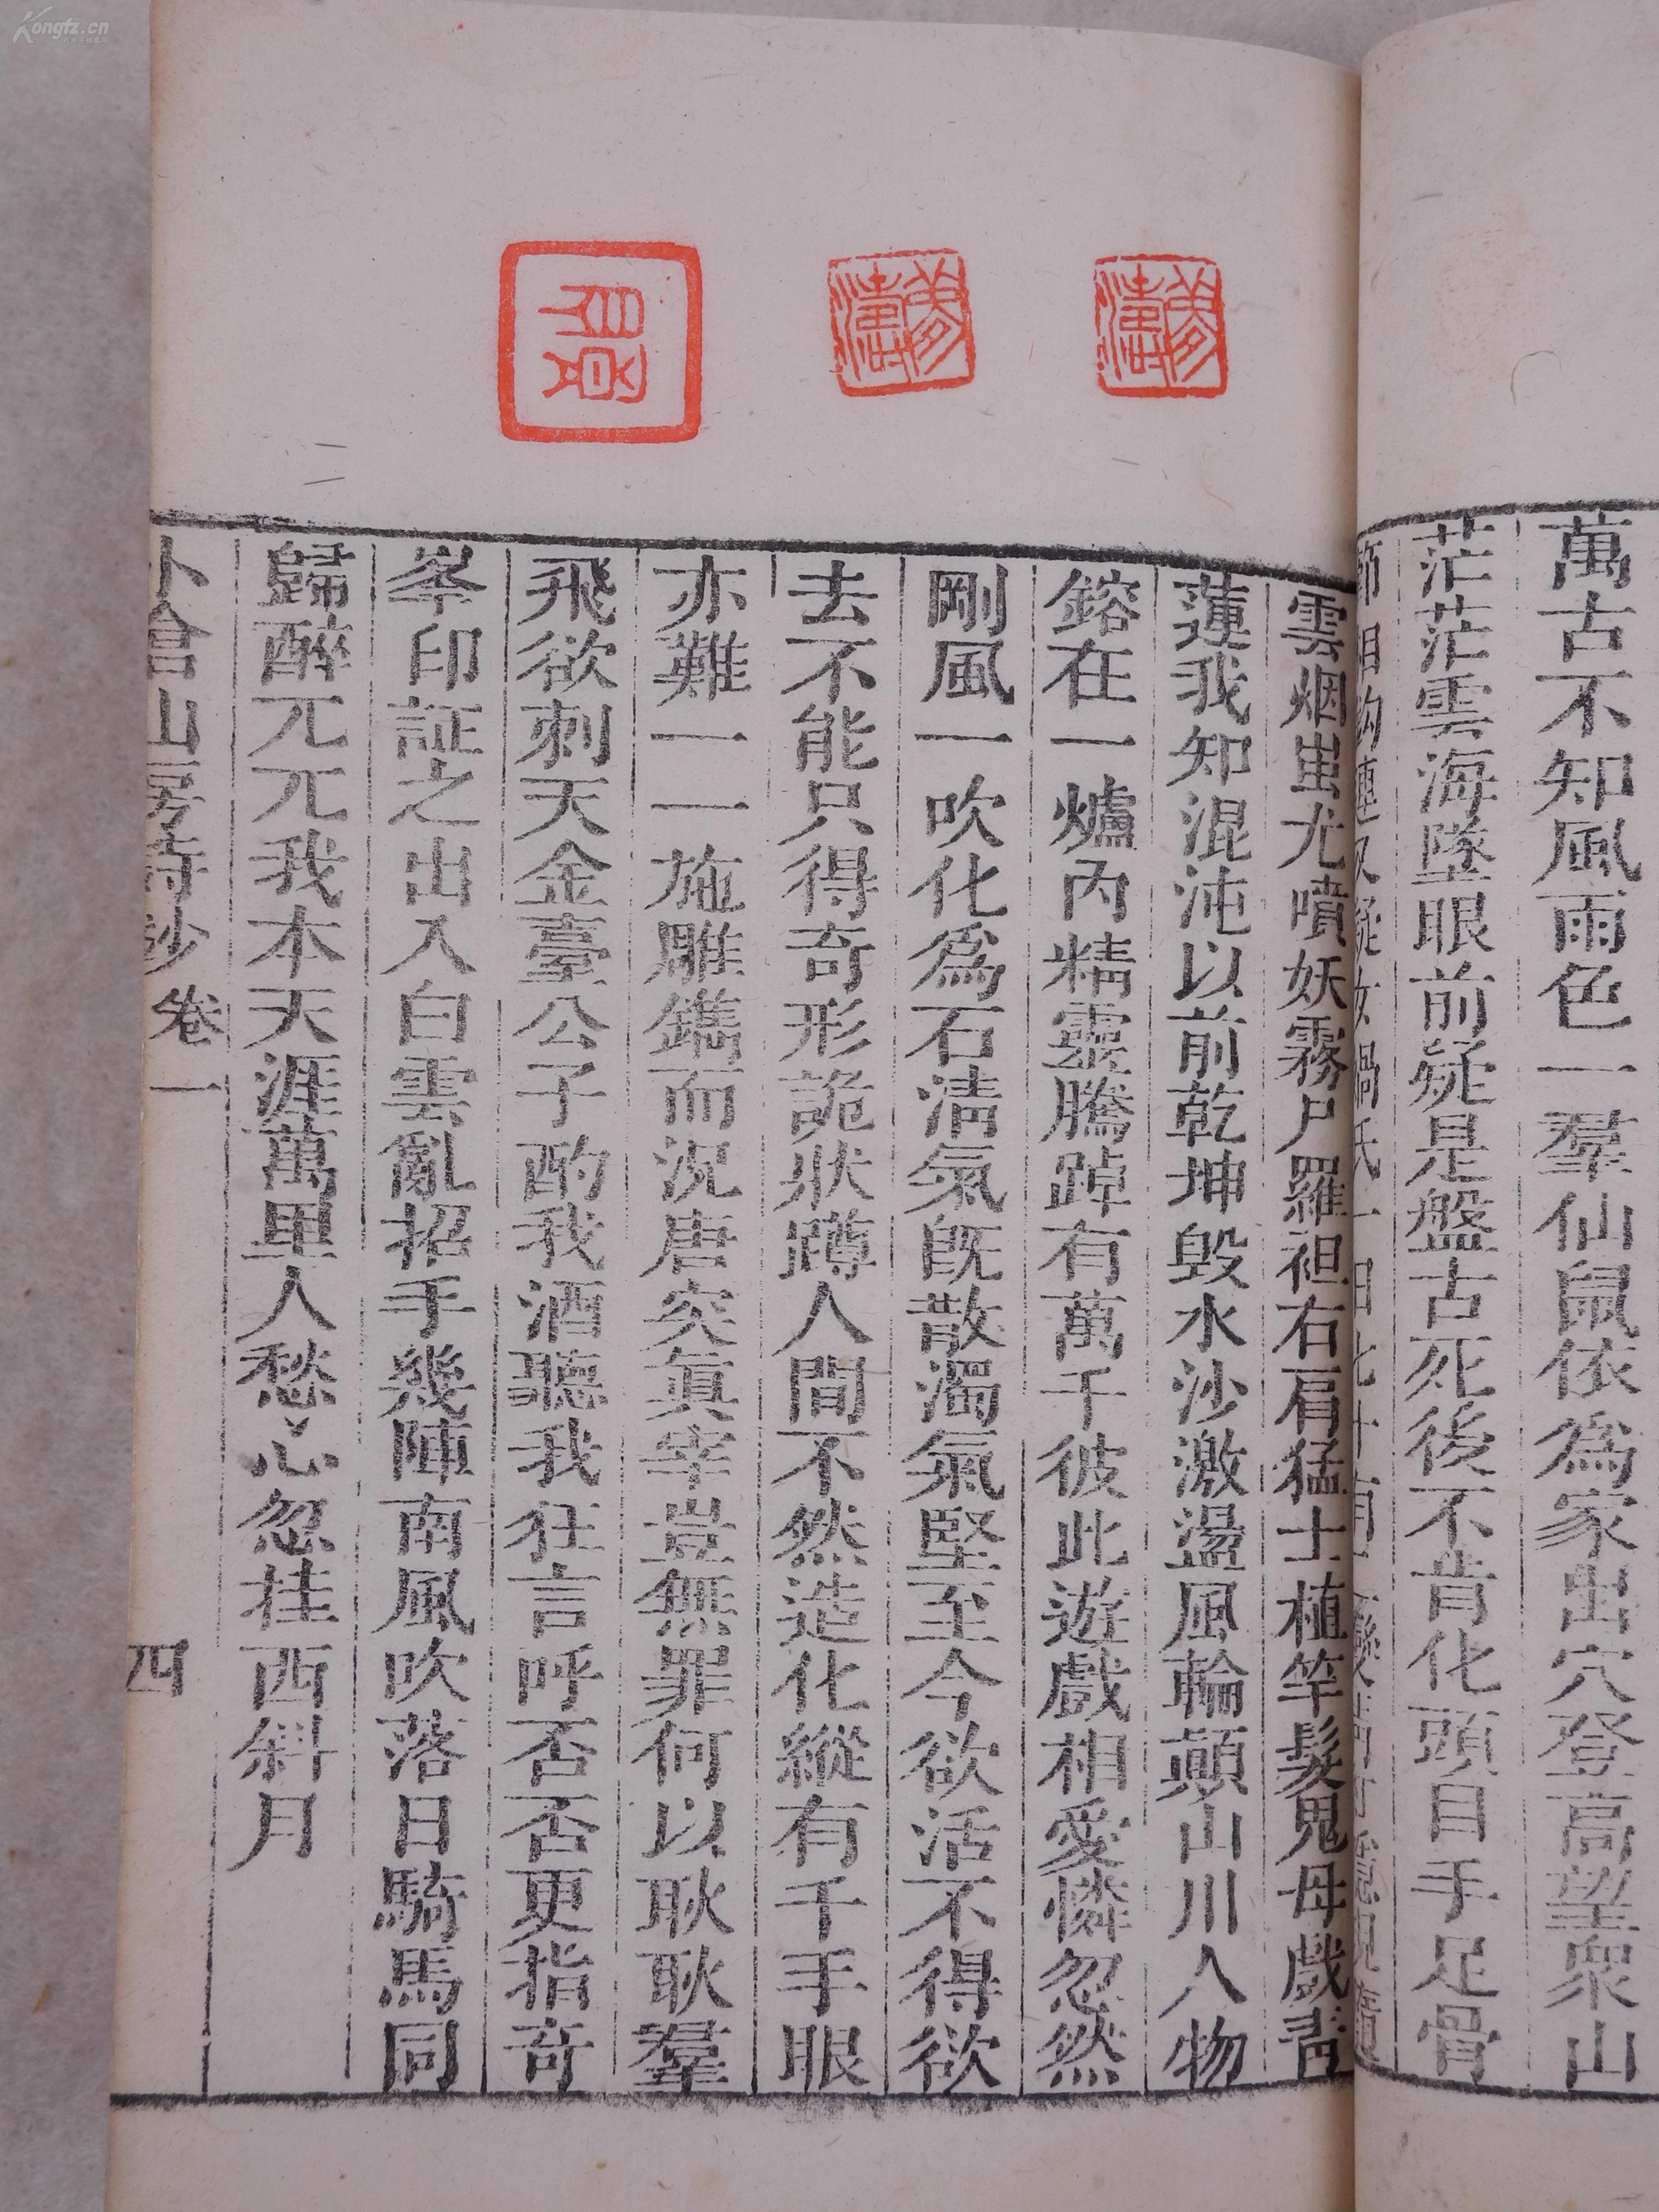 萬古不知風雨色一羣仙鼠依為家出穴登高望衆山
茫茫雲海墜眼前疑是盤古死後不肯化頭目手足骨
雲烟蚩尤噴妖霧尸羅袒右肩猛士植竿髮鬼母戲青
蓮我知混沌以前乾坤毁水沙激盪風輪顛山川人物
鎔在一爐內精靈騰踔有萬千彼此遊戲相愛憐忽然
剛風一吹化為石清氣旣散濁氣堅至今欲活不得欲
去不能只得奇形詭狀蹲人間不然造化縱有千手眼
亦難一一施雕鐫而況唐突眞宰豈無罪何以耿耿羣
飛欲刺天金臺公子酌我酒聽我狂言呼否否更指奇
峯印証之出入白雲亂招手幾陣南風吹落日騎馬同
歸醉兀兀我本天涯萬里人愁心忽挂西斜月
小倉山房詩鈔 卷一 四
Kongfz.cn